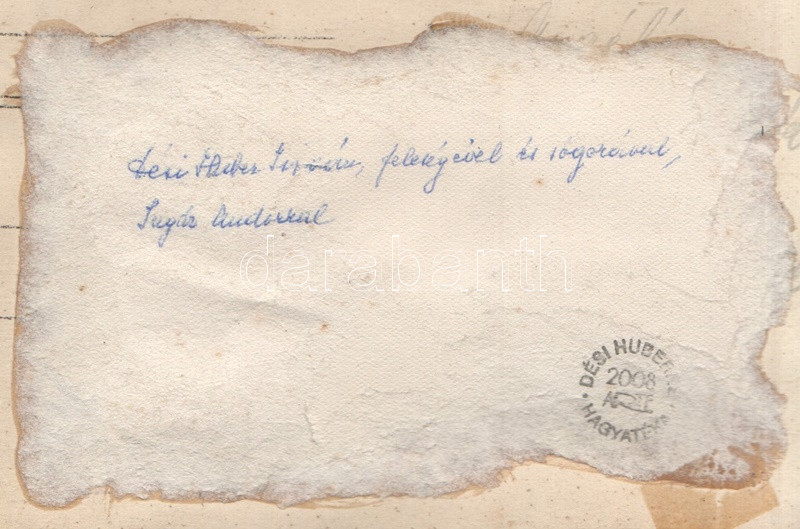 Dési Huber István, feleségével és sógorával,
Sugár Andorral
darabanth
DÉSI HUBER
2008
HAGYATÉKA